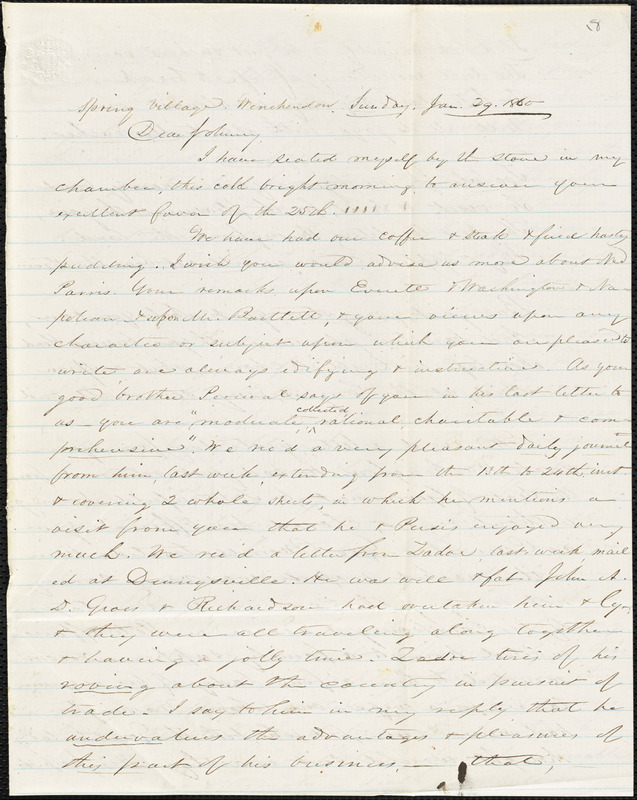 8
Spring Village. Winchendon. Sunday. Jan. 29. 1860
Dear Johnny
I have seated myself by the stove in my
chamber, this cold bright morning to answer your
excellent favor of the 25th. !!!! !
We have had our coffee & steak & fried hasty
pudding. I wish you would advise us more about Ned
Parris. Your remarks upon Everett & Washington & Na-
poleon & upon Mr. Bartlett, & your views upon any
character or subject upon which you are pleased to
write, are always edifying & instructive. As your
good brother Percival says of you in his last letter to
us – you are "moderate, collected, rational, charitable & com-
prehensive". We rec'd a very pleasant daily journal
from him, last week, extending from the 13th to 24th, inst
& covering 2 whole sheets, in which he mentions a
visit from you that he & Persis enjoyed very
much. We rec'd a letter from Zadoc last week mail
ed at Dennysville. He was well & fat. John A.
D. Gross & Richardson had overtaken him &
& they were all traveling along together
& having a jolly time. Zadoc tires of his
roving about the country in pursuit of
trade – I say to him in my reply that he
undervalues the advantages & pleasures of
this part of his business, – that,